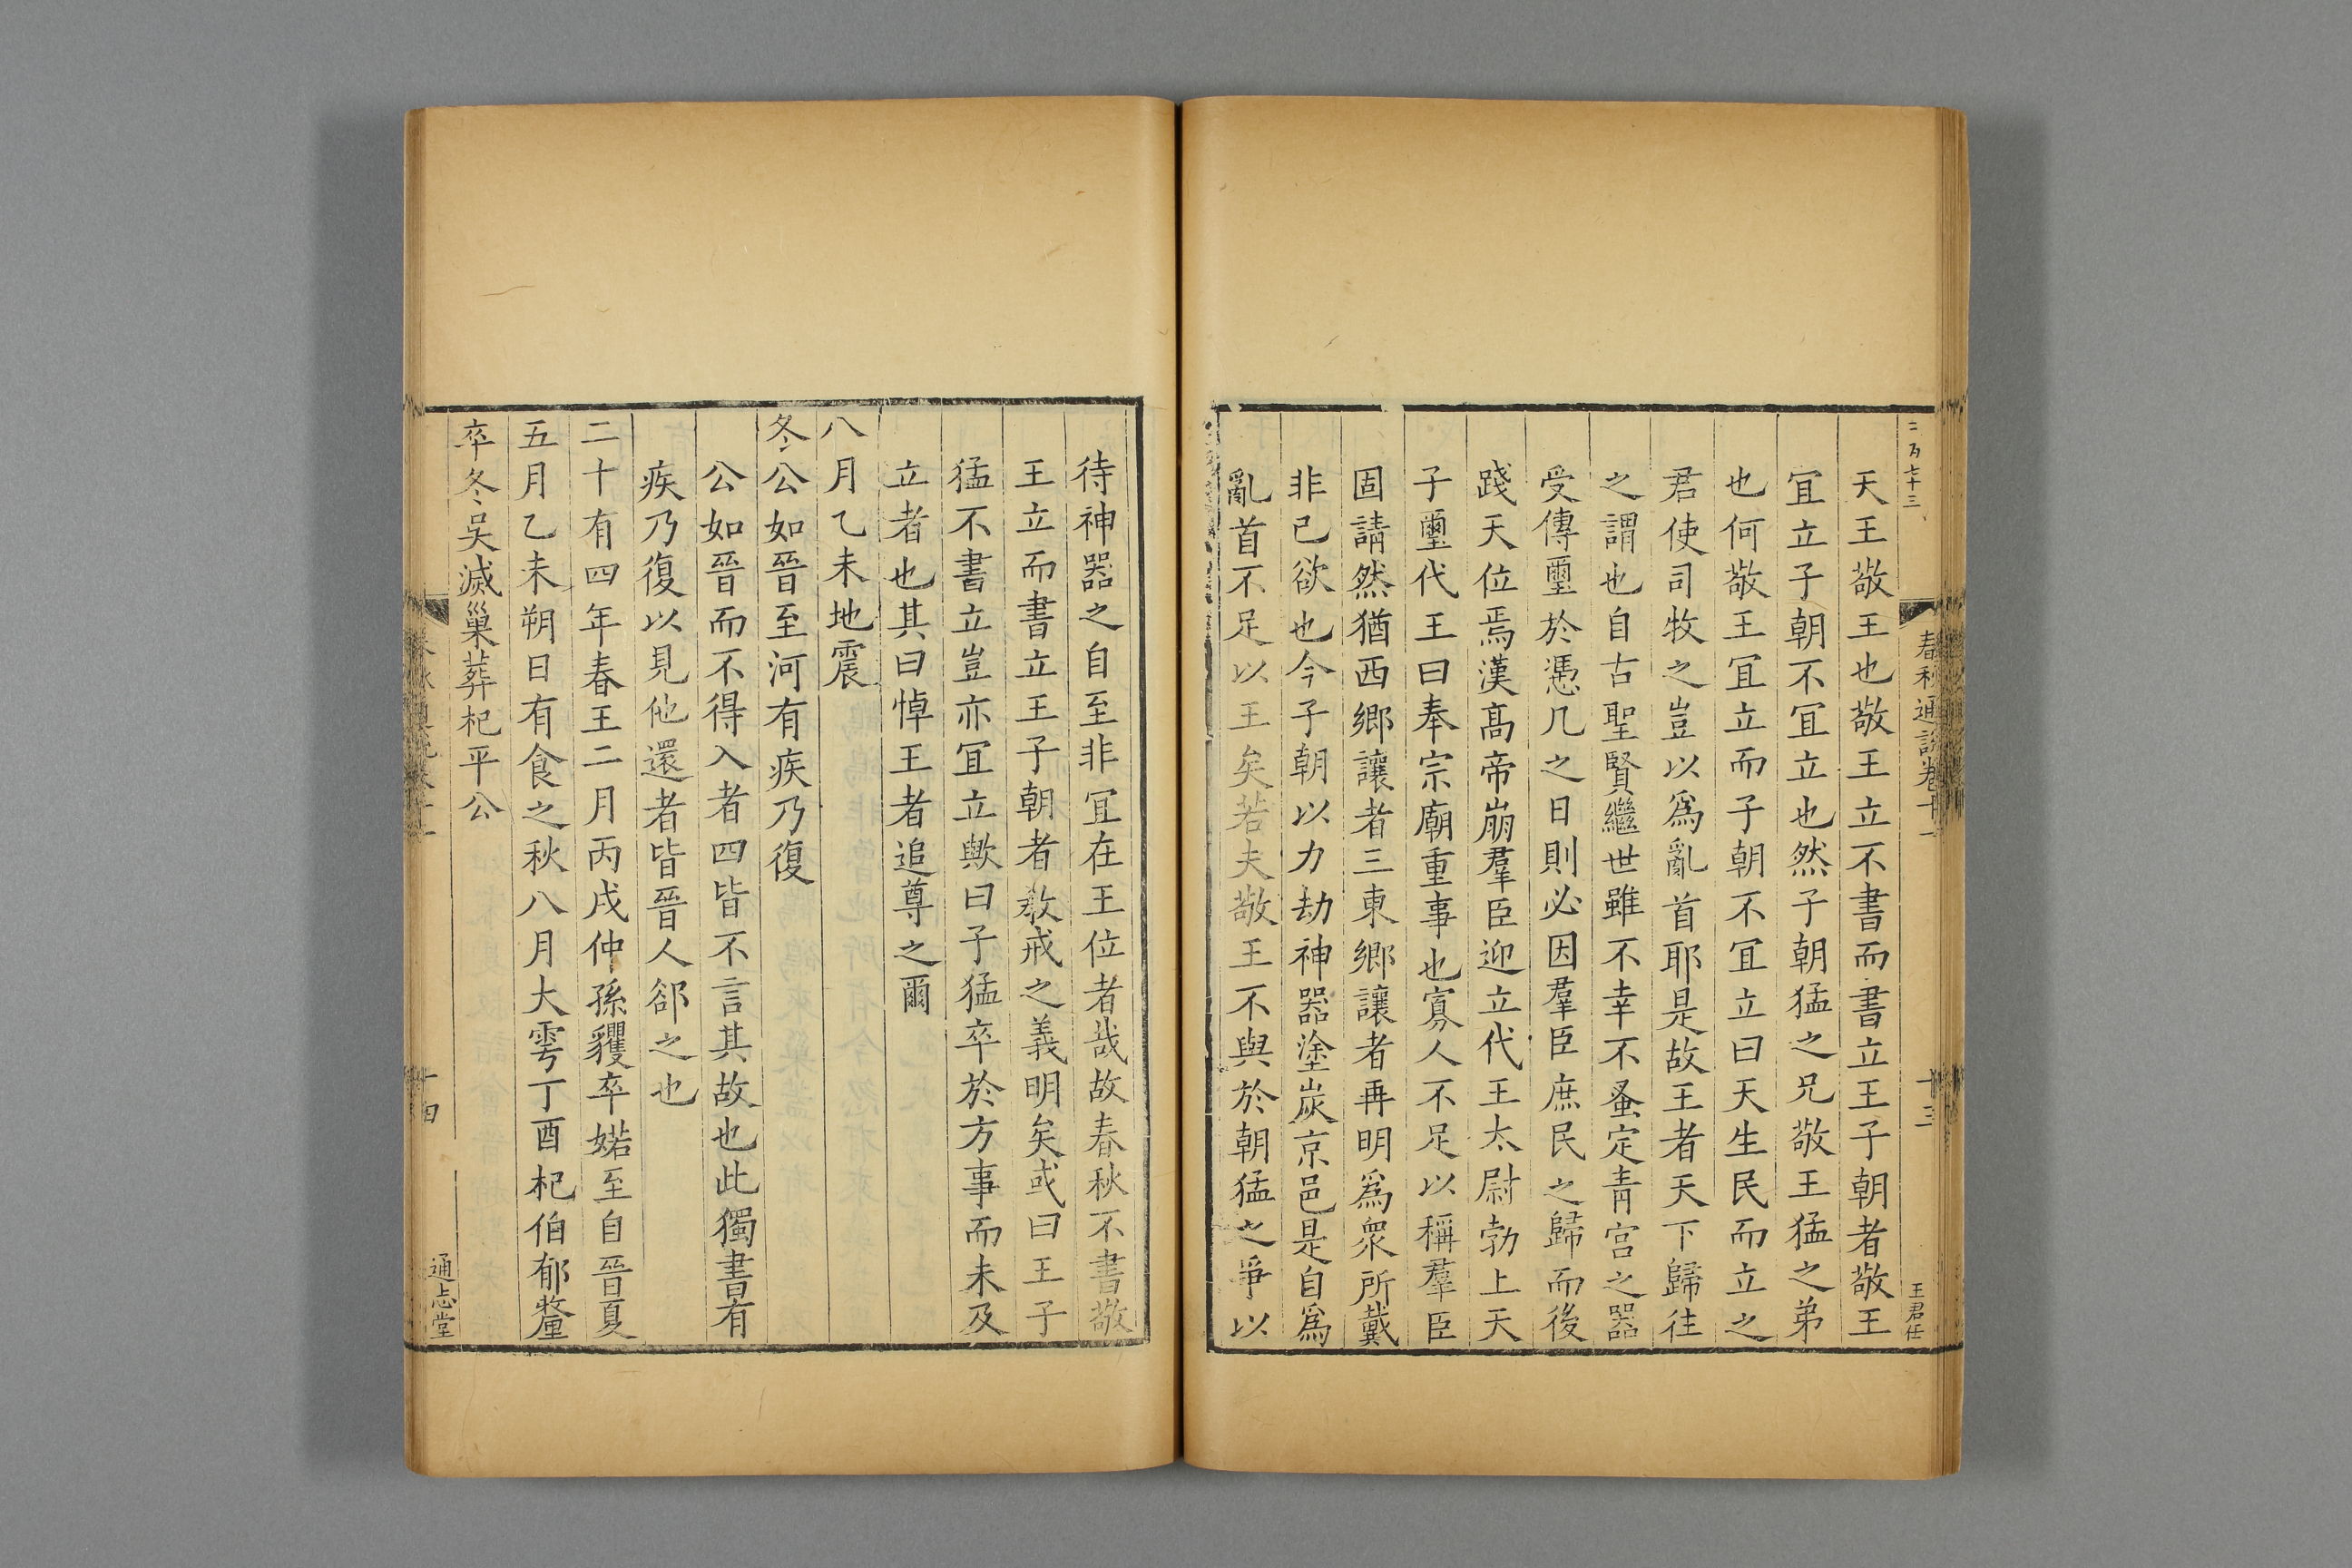 二百七十三
春秋通說卷十一
十三
王君任
天王敬王也敬王立不書而書立王子朝者敬王
宜立子朝不宜立也然子朝猛之兄敬王猛之弟
也何敬王宜立而子朝不宜立曰天生民而立之
君使司牧之豈以爲亂首耶是故王者天下歸往
之謂也自古聖賢繼世雖不幸不蚤定青宮之器
受傳璽於憑几之日則必因羣臣庶民之歸而後
踐天位焉漢髙帝崩羣臣迎立代王太尉勃上天
子璽代王曰奉宗廟重事也寡人不足以稱羣臣
固請然猶西鄉讓者三東鄉讓者再明爲衆所戴
非已欲也今子朝以力劫神器塗炭京邑是自爲
亂首不足以王矣若夫敬王不與於朝猛之爭以
待神器之自至非冝在王位者哉故春秋不書敬
王立而書立王子朝者敎戒之義明矣或曰王子
猛不書立豈亦冝立歟曰子猛卒於方事而未及
立者也其曰悼王者追尊之爾
八月乙未地震
冬公如晉至河有疾乃復
公如晉而不得入者四皆不言其故也此獨書有
疾乃復以見他還者皆晉人郤之也
二十有四年春王二月丙戌仲孫貜卒婼至自晉夏
五月乙未朔日有食之秋八月大雩丁酉杞伯郁釐
卒冬吳滅巢葬杞平公
十四
通志堂